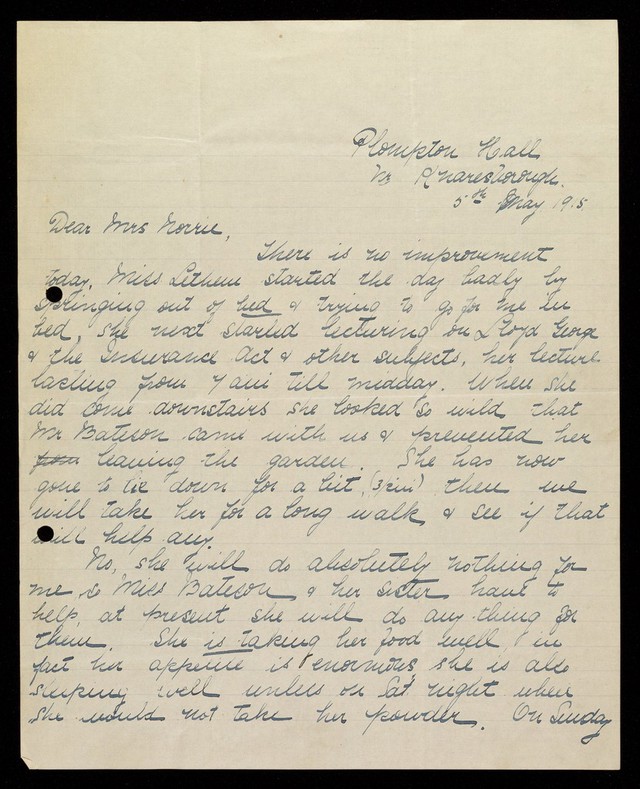 Plompton Hall
Nr Knaresborough.
5th May 1915.
Dear Mrs Norrie,
There is no improvement
today. Miss Lethem started the day badly by
springing out of bed & trying to go for me in
bed, she next started lecturing on Lloyd George
& the Insurance Act & other subjects, her lecture
lasting from 7 am till midday. When she
did come downstairs she looked so wild that
Mr Bateson came with us & prevented her
from leaving the garden. She has now
gone to lie down for a bit, (3 pm) then we
will take her for a long walk & see if that
will help any.
No, she will do absolutely nothing for
me, so Miss Bateson & her sister have to
help, at present she will do any thing for
them. She is taking her food well, in
fact her appetite is enormous, she is also
sleeping well unless on Sat night when
she would not take her powder. On Sunday